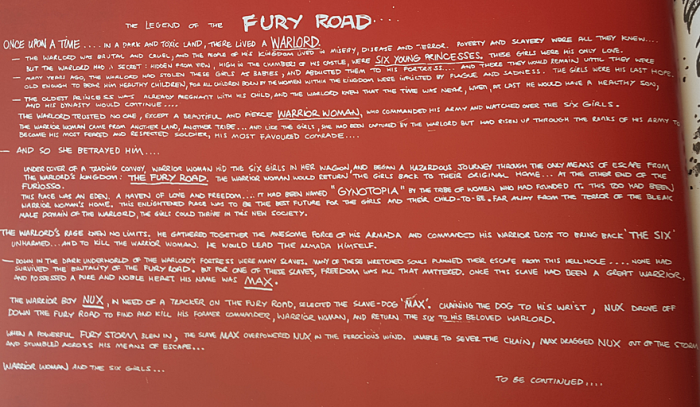 THE LEGEND OF THE FURY ROAD....
ONCE UPON A TIME.... IN A DARK AND TOXIC LAND, THERE LIVED A WARLORD.
— THE WARLORD WAS BRUTAL AND CRUEL, AND THE PEOPLE OF HIS KINGDOM LIVED IN MISERY, DISEASE AND TERROR. POVERTY AND SLAVERY WERE ALL THEY KNEW....
BUT THE WARLORD HAD A SECRET: HIDDEN FROM VIEW, HIGH IN THE CHAMBER OF HIS CASTLE, WERE SIX YOUNG PRINCESSES. THESE GIRLS WERE HIS ONLY LOVE.
— MANY YEARS AGO, THE WARLORD HAD STOLEN THESE GIRLS AS BABIES, AND ABDUCTED THEM TO HIS FORTRESS.... AND THERE THEY WOULD REMAIN UNTIL THEY WERE
OLD ENOUGH TO BEAR HIM HEALTHY CHILDREN, FOR ALL CHILDREN BORN OF THE WOMEN WITHIN THE KINGDOM WERE INFLICTED BY PLAGUE AND SADNESS. THE GIRLS WERE HIS LAST HOPE.
— THE OLDEST PRINCESS WAS ALREADY PREGNANT WITH HIS CHILD, AND THE WARLORD KNEW THAT THE TIME WAS NEAR, WHEN, AT LAST HE WOULD HAVE A HEALTHY SON,
AND HIS DYNASTY WOULD CONTINUE....
THE WARLORD TRUSTED NO ONE, EXCEPT A BEAUTIFUL AND FIERCE WARRIOR WOMAN, WHO COMMANDED HIS ARMY AND WATCHED OVER THE SIX GIRLS.
THE WARRIOR WOMAN CAME FROM ANOTHER LAND, ANOTHER TRIBE... AND LIKE THE GIRLS, SHE HAD BEEN CAPTURED BY THE WARLORD BUT HAD RISEN UP THROUGH THE RANKS OF HIS ARMY TO
BECOME HIS MOST FEARED AND RESPECTED SOLDIER, HIS MOST FAVOURED COMRADE....
— AND SO SHE BETRAYED HIM....
UNDER COVER OF A TRADING CONVOY, WARRIOR WOMAN HID THE SIX GIRLS IN HER WAGON AND BEGAN A HAZARDOUS JOURNEY THROUGH THE ONLY MEANS OF ESCAPE FROM
THE WARLORD'S KINGDOM: THE FURY ROAD. THE WARRIOR WOMAN WOULD RETURN THE GIRLS BACK TO THEIR ORIGINAL HOME... AT THE OTHER END OF THE
FURIOSSO.
THIS PLACE WAS AN EDEN. A HAVEN OF LOVE AND FREEDOM.... IT HAD BEEN NAMED "GYNOTOPIA" BY THE TRIBE OF WOMEN WHO HAD FOUNDED IT. THIS TOO HAD BEEN
WARRIOR WOMAN'S HOME. THIS ENLIGHTENED PLACE WAS TO BE THE BEST FUTURE FOR THE GIRLS AND THEIR CHILD-TO-BE. FAR AWAY FROM THE TERROR OF THE BLEAK
MALE DOMAIN OF THE WARLORD, THE GIRLS COULD THRIVE IN THIS NEW SOCIETY.
THE WARLORD'S RAGE KNEW NO LIMITS. HE GATHERED TOGETHER THE AWESOME FORCE OF HIS ARMADA AND COMMANDED HIS WARRIOR BOYS TO BRING BACK 'THE SIX'
UNHARMED.... AND TO KILL THE WARRIOR WOMAN. HE WOULD LEAD THE ARMADA HIMSELF.
— DOWN IN THE DARK UNDERWORLD OF THE WARLORD'S FORTRESS WERE MANY SLAVES. MANY OF THESE WRETCHED SOULS PLANNED THEIR ESCAPE FROM THIS HELL HOLE.... NONE HAD
SURVIVED THE BRUTALITY OF THE FURY ROAD. BUT FOR ONE OF THESE SLAVES, FREEDOM WAS ALL THAT MATTERED. ONCE THIS SLAVE HAD BEEN A GREAT WARRIOR,
AND POSSESSED A PURE AND NOBLE HEART. HIS NAME WAS MAX.
THE WARRIOR BOY NUX, IN NEED OF A TRACKER ON THE FURY ROAD, SELECTED THE SLAVE-DOG 'MAX'. CHAINING THE DOG TO HIS WRIST, NUX DROVE OFF
DOWN THE FURY ROAD TO FIND AND KILL HIS FORMER COMMANDER, WARRIOR WOMAN, AND RETURN THE SIX TO HIS BELOVED WARLORD.
WHEN A POWERFUL FURY STORM BLEW IN, THE SLAVE MAX OVERPOWERED NUX IN THE FEROCIOUS WIND. UNABLE TO SEVER THE CHAIN, MAX DRAGGED NUX OUT OF THE STORM
AND STUMBLED ACROSS HIS MEANS OF ESCAPE...
WARRIOR WOMAN AND THE SIX GIRLS...
TO BE CONTINUED....